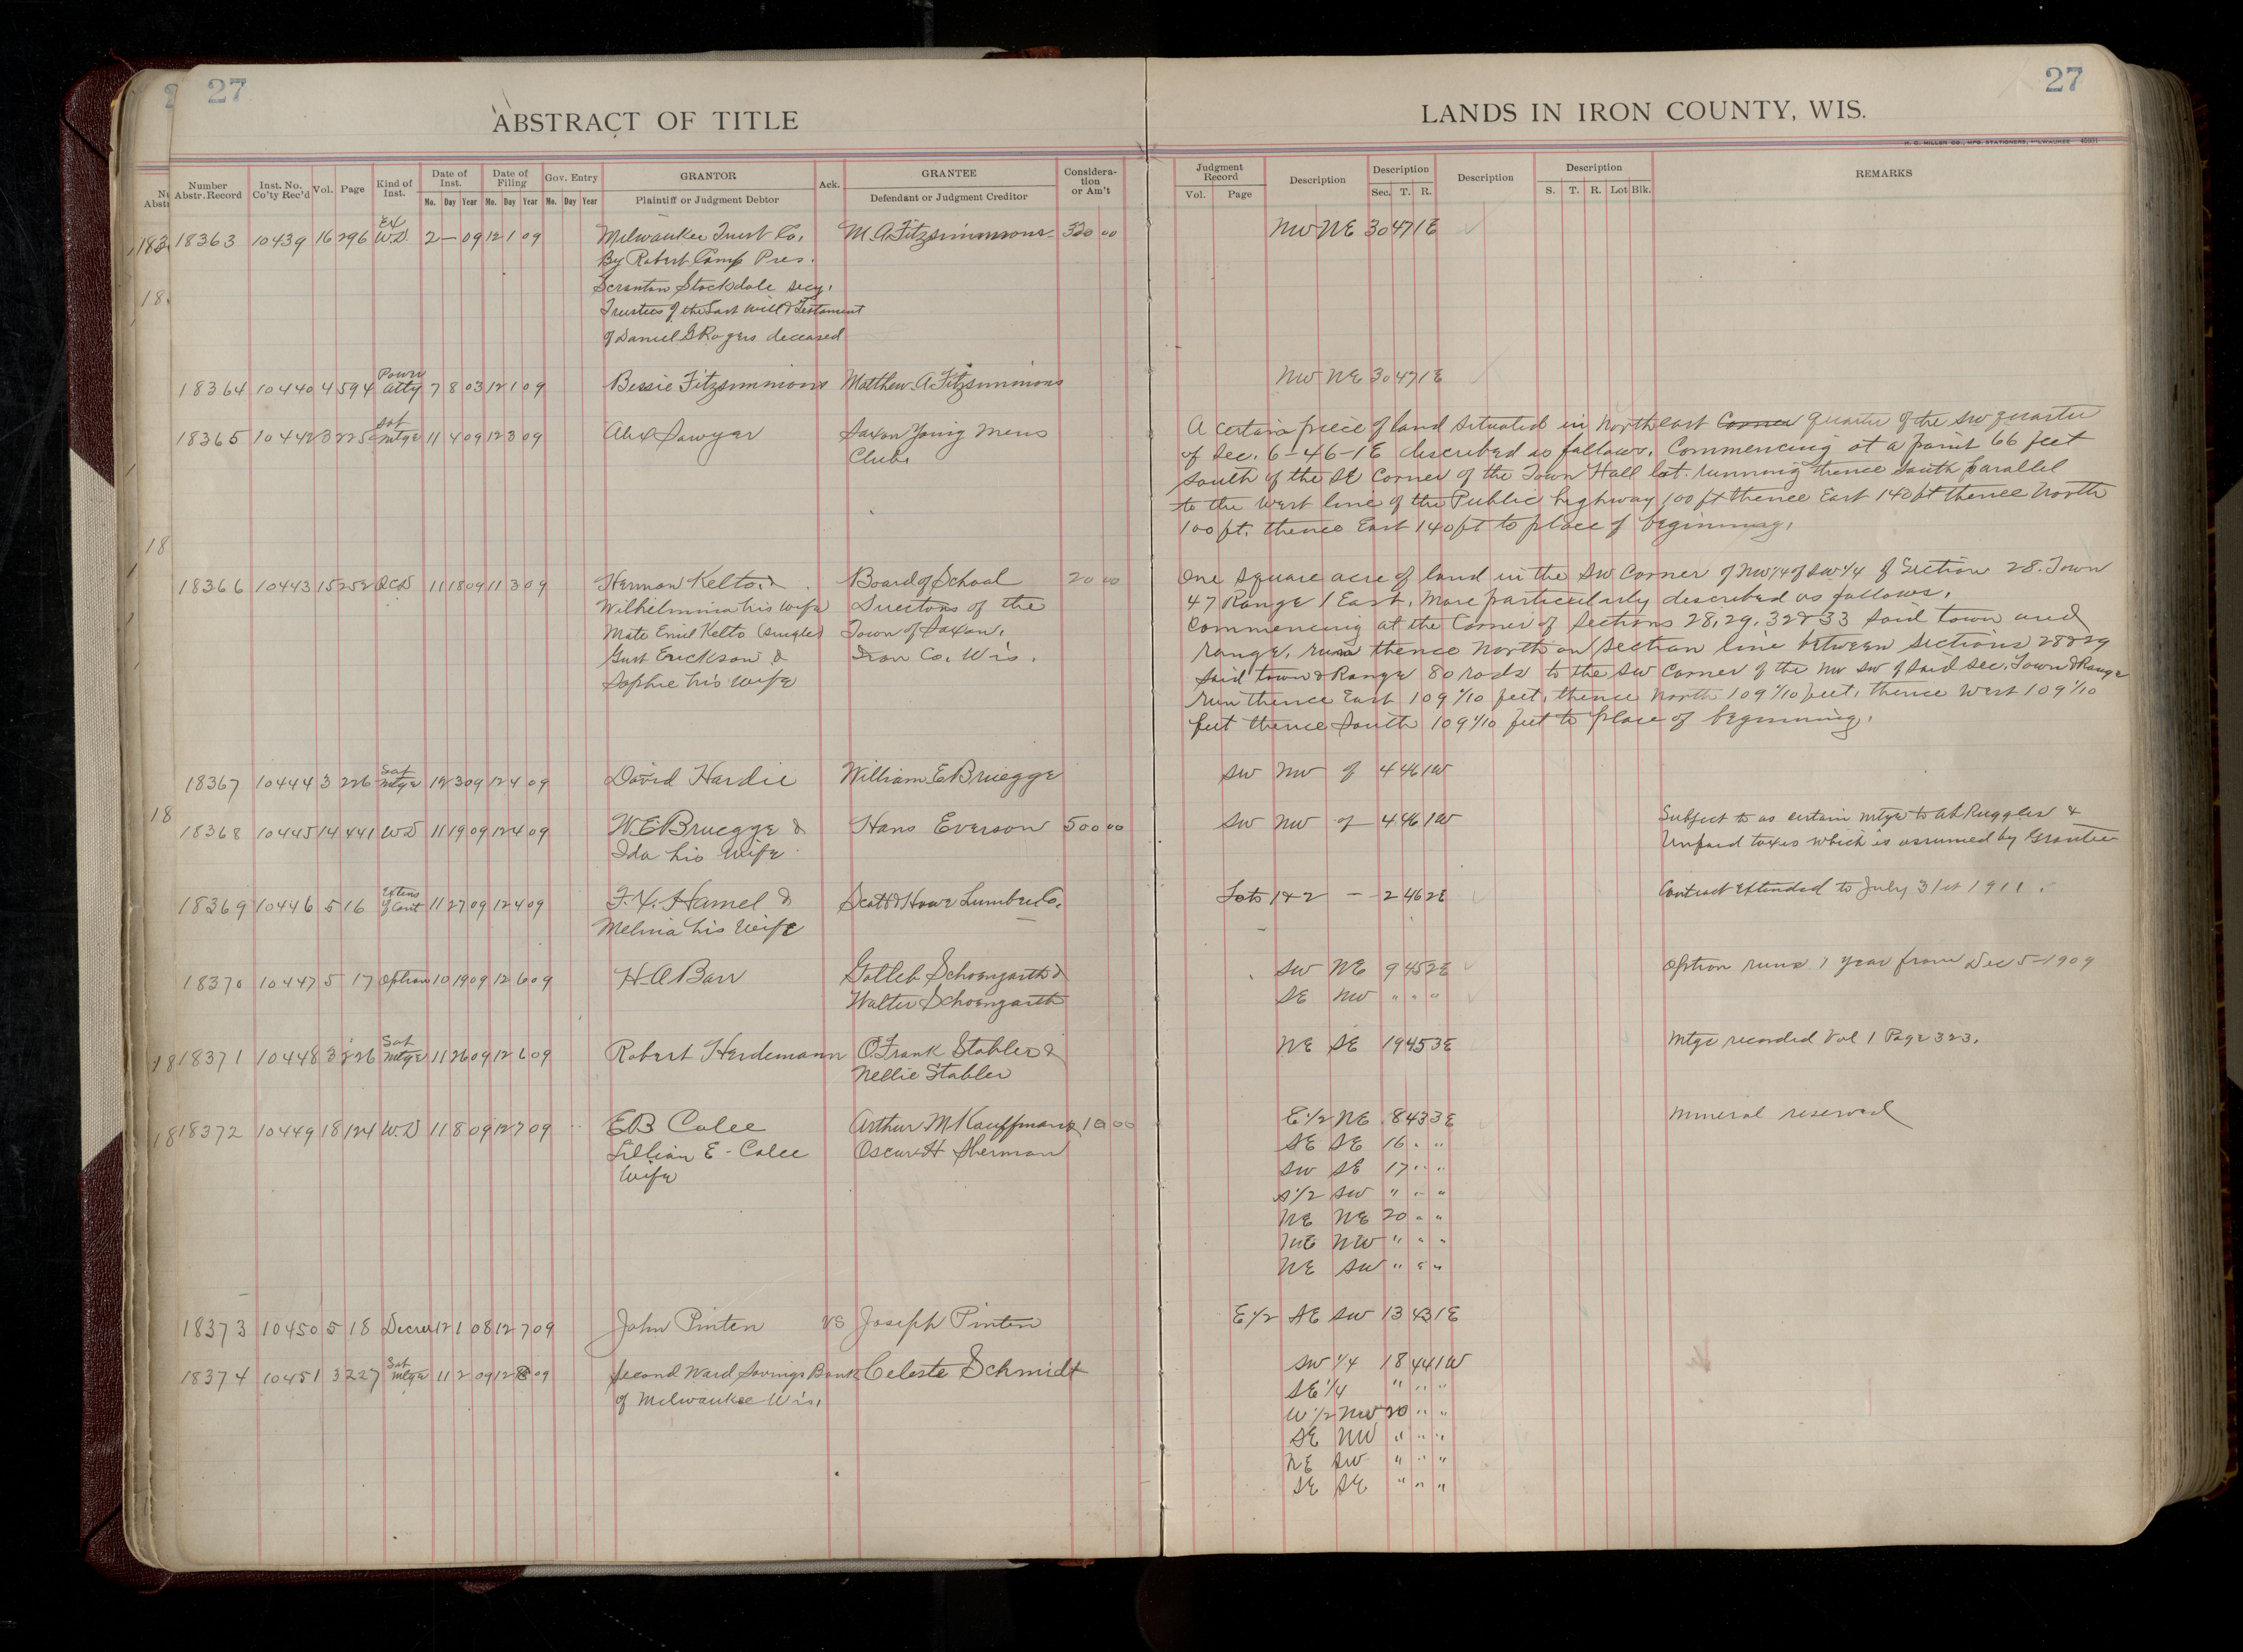 27
ABSTRACT OF TITLE
Number Abstr.Record Inst. No. Co'ty Rec'd Vol. Page Kind of Inst. Date of Inst. Mo. Day Year Date of Filing Mo. Day Year Gov. Entry Mo. Day Year GRANTOR Plaintiff or Judgment Debtor Ack. GRANTEE Defendant or Judgment Creditor Considera-tion or Am't
18363 10439 16 296 Ex W.D. 2 — 09 12 1 09 Milwaukee Trust Co. M. A. Fitzsimmons 320 00
By Robert Camp Pres.
Scranton Stockdale secy.
Trustees of the Last Will & Testament
of Daniel G Rogers deceased
18364 10440 4 594 Power Atty 7 8 03 12 1 09 Bessie Fitzsimmons Matthew A. Fitzsimmons
18365 10442 3 225 Sat Mtge 11 4 09 12 3 09 Alex Sawyer Saxon Young Mens
Club.
18366 10443 15 252 QCD 11 18 09 11 3 09 Herman Kelto & Board of School 20 00
Wilhelmina his wife Directors of the
Mate Emil Kelto (single) Town of Saxon,
Gust Erickson & Iron Co. Wis.
Sophie his wife
18367 10444 3 226 Sat Mtge 12 3 09 12 4 09 David Hardie William E Bruegge
18368 10445 14 441 WD 11 19 09 12 4 09 W. E Bruegge & Hans Everson 500 00
Ida his wife
18369 10446 5 16 Extens of Cont 11 27 09 12 4 09 F. X. Hamel & Scott & Howe Lumber Co.
Melina his wife
18370 10447 5 17 Option 10 19 09 12 6 09 H. A Barr Gotleb Schoengarth &
Walter Schoengarth
18371 10448 3 226 Sat Mtge 11 26 09 12 6 09 Robert Herdemann O. Frank Stabler &
Nellie Stabler
18372 10449 18 124 W.D 11 8 09 12 7 09 E B Colee Arthur M Kauffman & 10 00
Lillian E. Colee Oscar H Sherman
Wife
18373 10450 5 18 Decree 12 1 08 12 7 09 John Pinten vs Joseph Pinten
18374 10451 3 227 Sat Mtge 11 2 09 12 8 09 Second Ward Savings Bank Celeste Schmidt
of Milwaukee Wis.
27
LANDS IN IRON COUNTY, WIS.
H. C. MILLER CO., MFG. STATIONERS, MILWAUKEE
Judgment Record Vol. Page Description Description Sec. T. R. Description Description S. T. R. Lot Blk. REMARKS
NW NE 30 47 1E
NW NE 30 47 1E
A certain piece of land situated in North east Corner quarter of the SW quarter
of Sec. 6-46-1E described as follows. Commencing at a point 66 feet
South of the SE Corner of the Town Hall lot. running thence South parallel
to the West line of the Public highway 100 ft thence East 140 ft thence North
100 ft. thence East 140 ft to place of beginning.
One square acre of land in the SW Corner of NW 1/4 of SW 1/4 of Section 28. Town
47 Range 1 East, More particularly described as follows.
Commencing at the Corner of Sections 28, 29, 32 & 33 Said town and
range, run thence North on section line between sections 28 & 29
Said town & Range 80 rods to the SW Corner of the NW SW of said Sec. Town & Range
run thence East 109 1/10 feet, thence North 109 1/10 feet, thence West 109 1/10
feet thence South 109 1/10 feet to place of beginning.
SW NW of 4 46 1W
SW NW of 4 46 1W Subject to as certain mtge to Ruggles &
Unpaid taxes which is assumed by Grantee
Lots 1 & 2 — 2 46 2E Contract extended to July 31st 1911.
SW NE 9 45 2E Option runs 1 year from Dec 5-1909
SE NW " " "
NE SE 19 45 3E Mtge recorded Vol 1 Page 323.
E 1/2 NE 8 43 3E Mineral reserved
SE SE 16 " "
SW SE 17 " "
S 1/2 SW " " "
NE NE 20 " "
NE NW " " "
NE SW " " "
E 1/2 SE SW 13 43 1E
SW 1/4 18 44 1W
SE 1/4 " " "
W 1/2 NW 20 " "
SE NW " " "
NE SW " " "
SE SE " " "